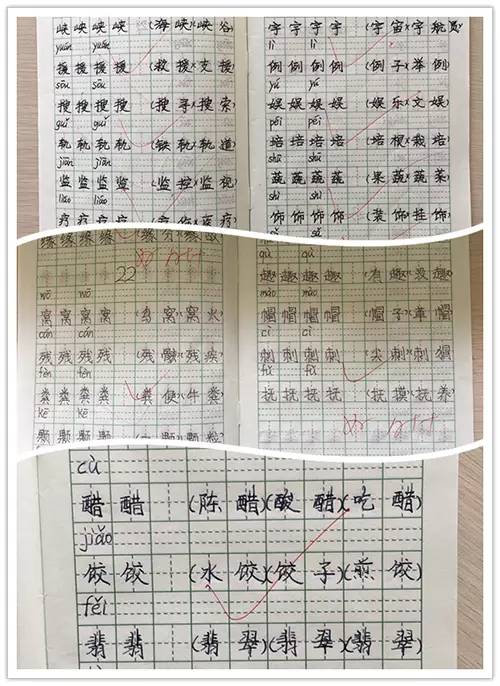 峡 峡 峡 峡 (海 峡)(峡 谷)
yuán yuán
援 援 援 援 (救 援)(支 援)
sōu sōu
搜 搜 搜 搜 (搜 寻)(搜 索)
guǐ guǐ
轨 轨 轨 轨 (铁 轨)(轨 道)
jiān jiān
监 监 监 监 (监 控)(监 视)
liáo liáo
疗 疗 疗 疗
宇 宇 宇 宇 (宇 宙)(宇 航员)
lì lì
例 例 例 例 (例 子)(举 例)
yú yú
娱 娱 娱 娱 (娱 乐)(文 娱)
péi péi
培 培 培 培 (培 根)(栽 培)
shū shū
蔬 蔬 蔬 蔬 (果 蔬)(蔬 菜)
shì shì
饰 饰 饰 饰 (装 饰)(挂 饰)
缘 缘 缘 缘
22
wō wō
窝 窝 窝 窝 (鸟 窝)(窝 火)
cán cán
残 残 残 残 (残 骸)(残 疾)
fèn fèn
粪 粪 粪 粪 (粪 便)(牛 粪)
kē kē
颗 颗 颗 颗
qù qù
趣 趣 趣 趣 (有 趣)(没 趣)
mào mào
帽 帽 帽 帽 (帽 子)(草 帽)
cì cì
刺 刺 刺 刺 (尖 刺)(刺 猬)
fǔ fǔ
抚 抚 抚 抚 (抚 摸)(抚 养)
cù
醋 醋 (陈 醋)(酸 醋)(吃 醋)
jiǎo
饺 饺 (水 饺)(饺 子)(煎 饺)
fěi
翡 翡 (翡 翠)(翡 翠)(翡 翠)